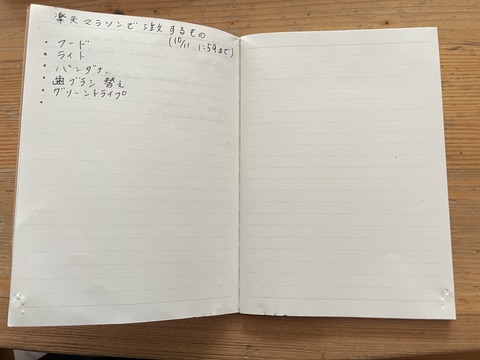 楽天マラソンで注文するもの
(10/11 1:59まで)
・フード
・ライト
・バンダナ
・歯ブラシ替え
・グリーントライプ
・